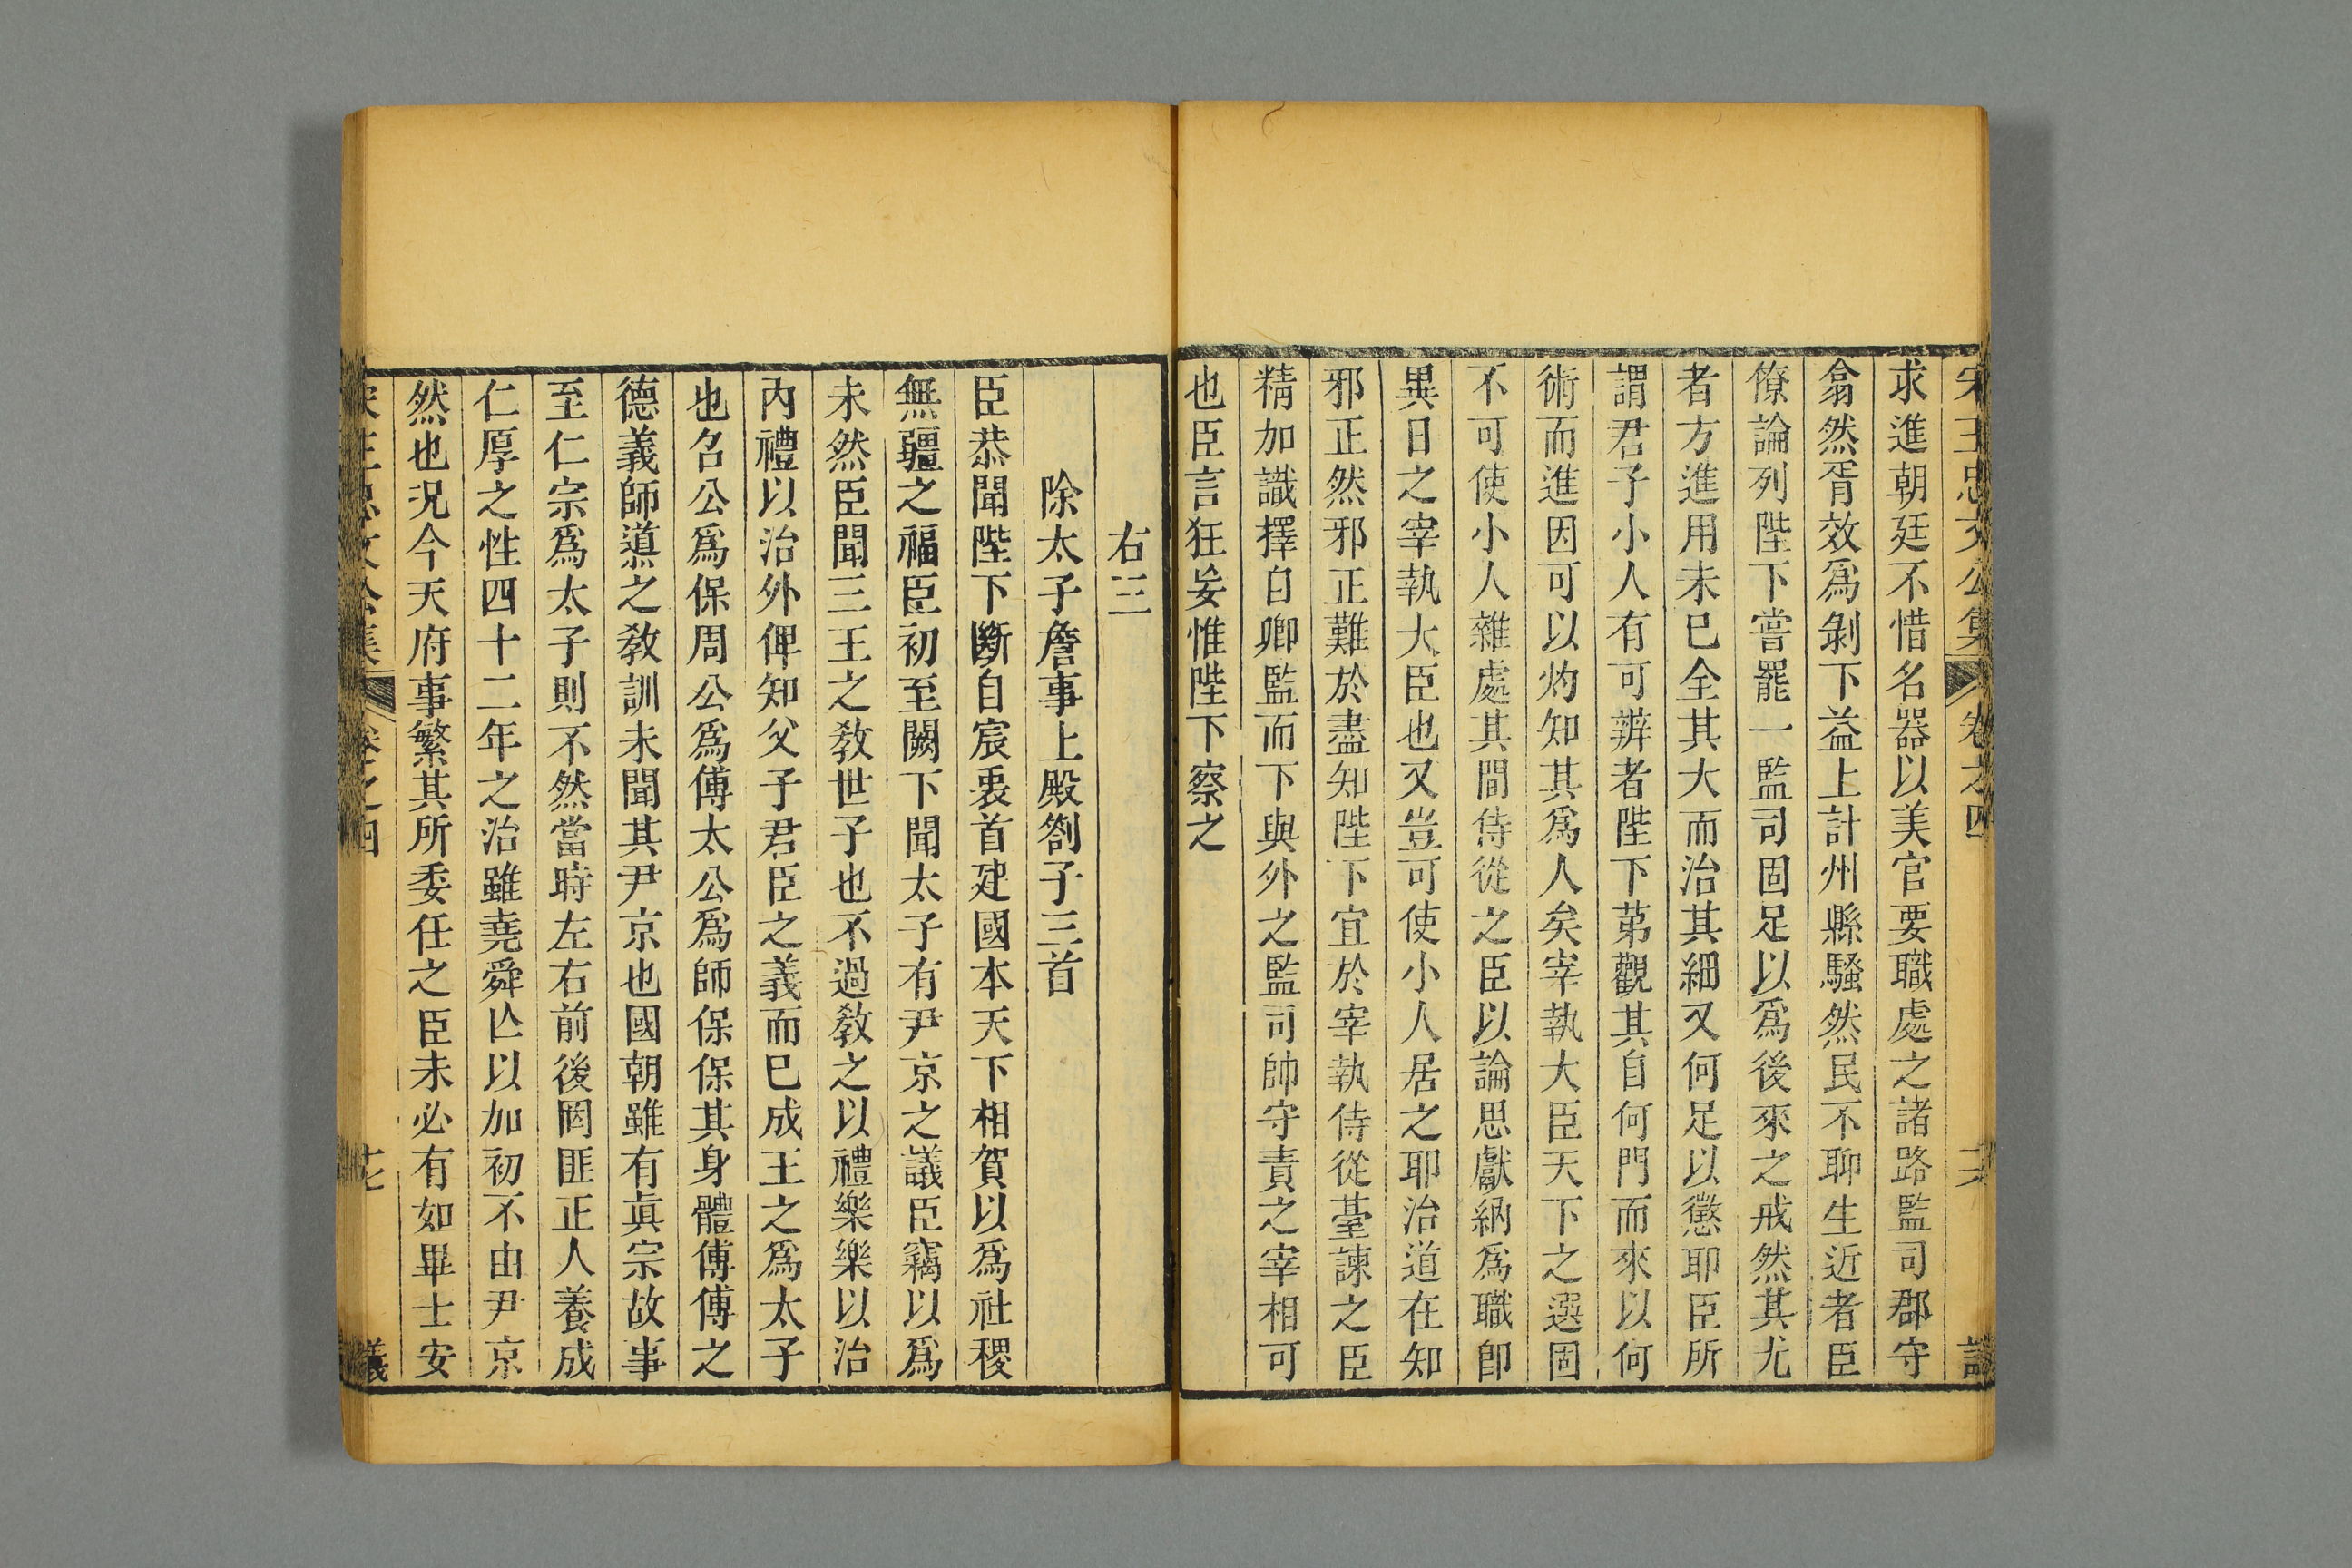 宋王忠文公集 卷之四 議
求進朝廷不惜名器以美官要職處之諸路監司郡守
翕然胥效爲剝下益上計州縣騷然民不聊生近者臣
僚論列陛下嘗罷一監司固足以爲後來之戒然其尤
者方進用未已全其大而治其細又何足以懲耶臣所
謂君子小人有可辨者陛下苐觀其自何門而來以何
術而進因可以灼知其爲人矣宰執大臣天下之選固
不可使小人雜處其間侍從之臣以論思獻納爲職卽
異日之宰執大臣也又豈可使小人居之耶治道在知
邪正然邪正難於盡知陛下宜於宰執侍從臺諫之臣
精加識擇自卿監而下與外之監司帥守責之宰相可
也臣言狂妄惟陛下察之
右三
除太子詹事上殿劄子三首
臣恭聞陛下斷自宸衷首建國本天下相賀以爲社稷
無疆之福臣初至闕下聞太子有尹京之議臣竊以爲
未然臣聞三王之敎世子也不過敎之以禮樂樂以治
內禮以治外俾知父子君臣之義而已成王之爲太子
也召公爲保周公爲傅太公爲師保保其身體傅傅之
德義師道之敎訓未聞其尹京也國朝雖有眞宗故事
至仁宗爲太子則不然當時左右前後罔匪正人養成
仁厚之性四十二年之治雖堯舜亡以加初不由尹京
然也況今天府事繁其所委任之臣未必有如畢士安
宋王忠文公集 卷之四 議